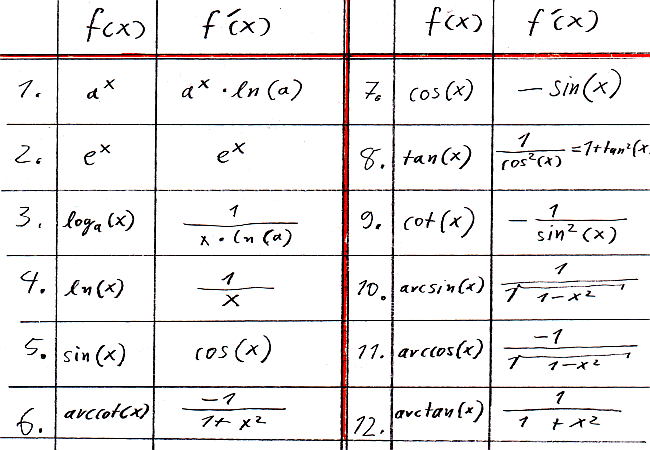 f(x) f'(x) f(x) f'(x)
1. a^x a^x · ln(a) 7. cos(x) − sin(x)
2. e^x e^x 8. tan(x) 1/cos²(x) = 1+tan²(x
3. log_a(x) 1/(x · ln(a) 9. cot(x) − 1/sin²(x)
4. ln(x) 1/x 10. arcsin(x) 1/√(1−x²)
5. sin(x) cos(x) 11. arccos(x) −1/√(1−x²)
6. arccot(x) −1/(1+x²) 12. arctan(x) 1/(1+x²)